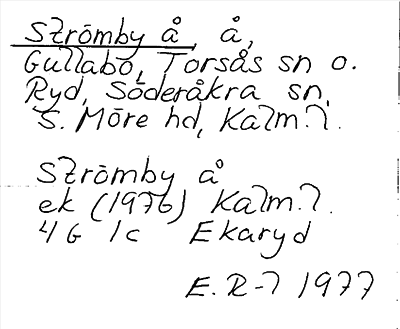 Strömby å, å,
Gullabo, Torsås sn o.
Ryd, Söderåkra sn,
S. Möre hd, Kalm. l.
Strömby å
ek (1976) Kalm. l.
4 G 1c Ekaryd
E. R-l 1977